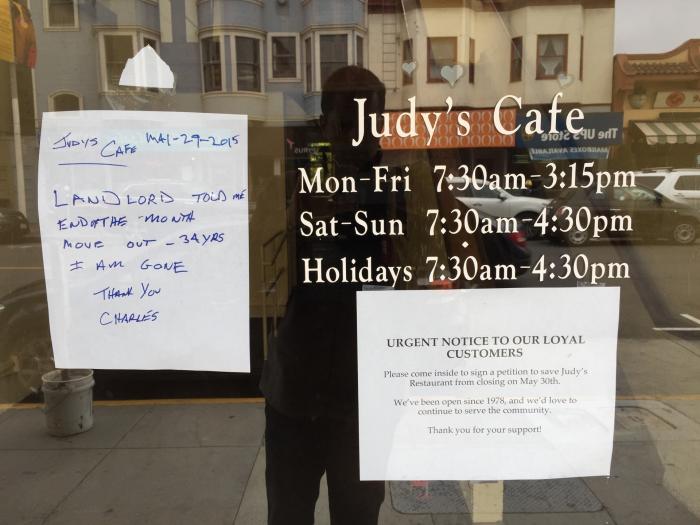 JUDYS CAFE MAI-29-2015
LANDLORD TOLD ME
END OF THE MONTH
MOVE OUT - 34 YRS
I AM GONE
THANK YOU
CHARLES
Judy's Cafe
Mon-Fri 7:30am-3:15pm
Sat-Sun 7:30am-4:30pm
Holidays 7:30am-4:30pm
URGENT NOTICE TO OUR LOYAL
CUSTOMERS
Please come inside to sign a petition to save Judy's
Restaurant from closing on May 30th.
We've been open since 1978, and we'd love to
continue to serve the community.
Thank you for your support!
The UPS Store
MAILBOXES AVAILABLE